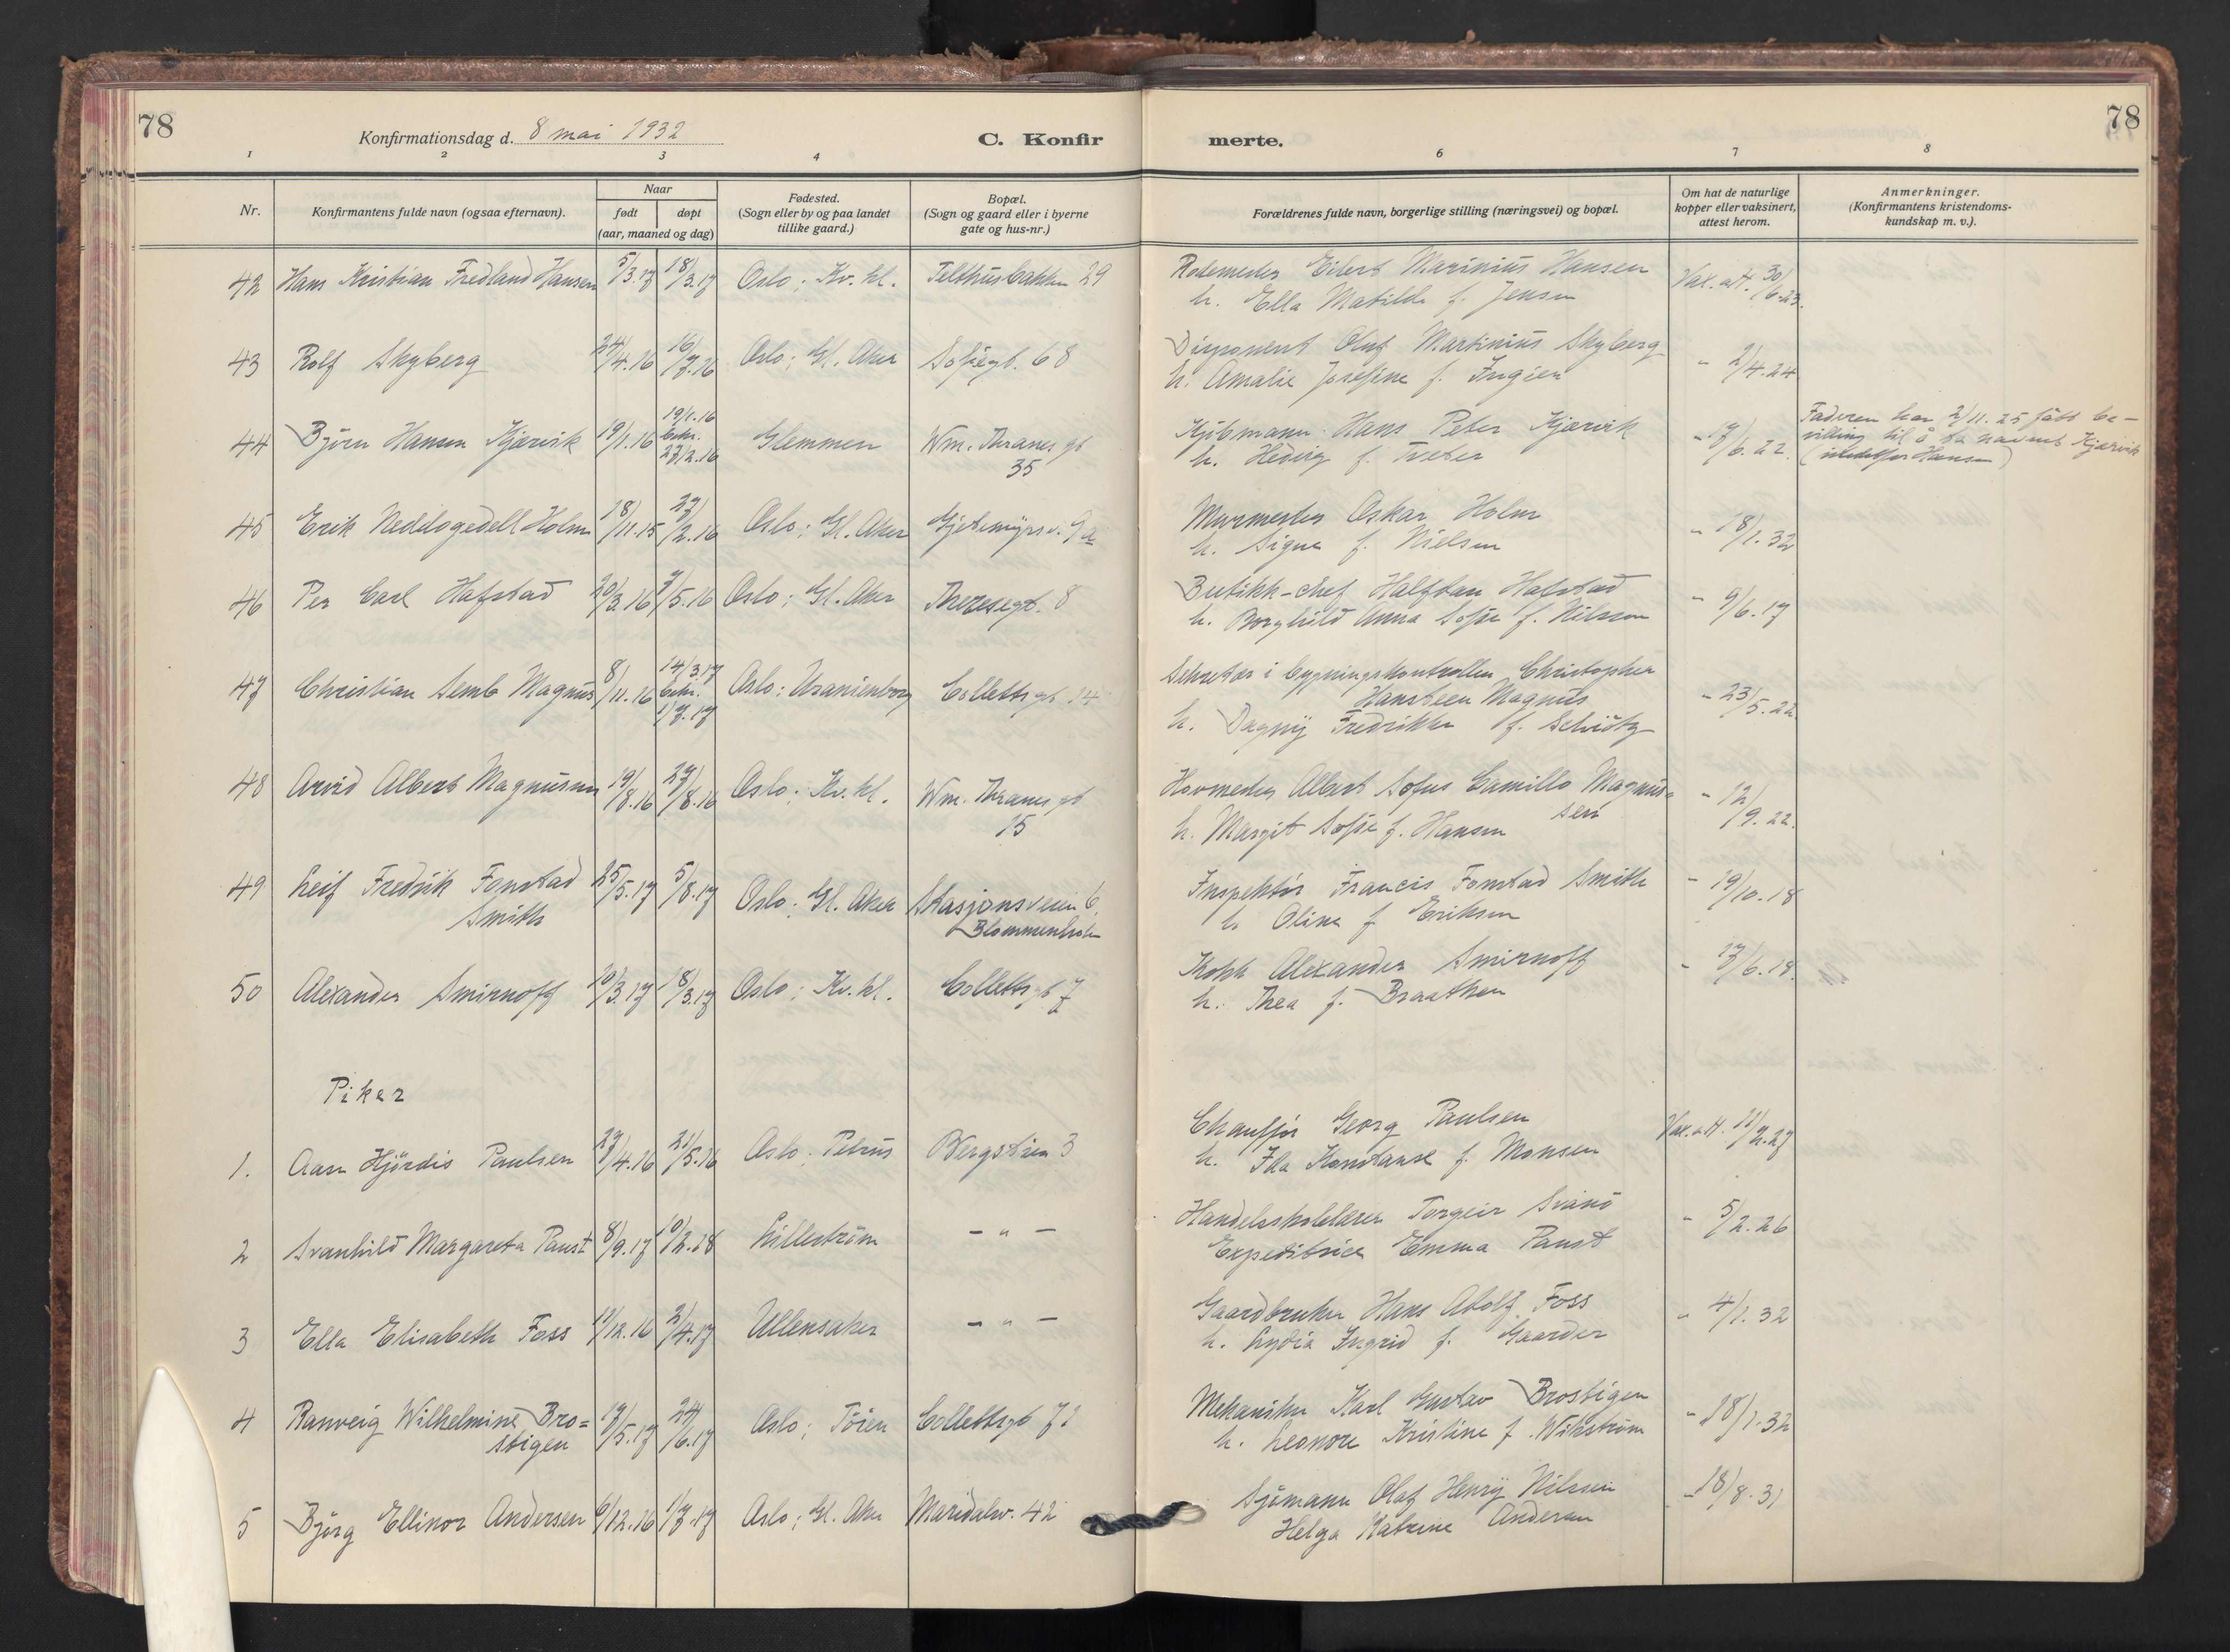 78
Konfirmationsdag d. 8 mai 1932
C. Konfirmerte.
78
1 2 3 4 6 7 8
Nr.
Konfirmantens fulde navn (ogsaa efternavn).
Naar
født
døpt
(aar, maaned og dag)
Fødested.
(Sogn eller by og paa landet
tillike gaard.)
Bopæl.
(Sogn og gaard eller i byerne
gate og hus-nr.)
Forældrenes fulde navn, borgerlige stilling (næringsvei) og bopæl.
Om hat de naturlige
kopper eller vaksinert,
attest herom.
Anmerkninger.
(Konfirmantens kristendoms-
kundskap m. v.).
42 Hans Kristian Fredland Hansen 5/3.17 18/3.17 Oslo; Kv. kl. Telthusbakken 29 Rodemester Eilert Marinius Hansen Vax. att. 30/6.23.
h. Ella Matilde f. Jensen
43 Rolf Skyberg 24/4.16 16/7.16 Oslo; Gl. Aker Sofiegt. 68 Disponent Oluf Martinius Skyberg - 2/4.24
h. Amalie Josefine f. Ingier
44 Björn Hansen Kjærvik 19/1.16 19/1.16 bekr. 27/2.16 Glemmen Wm. Thranes gt 35 Kjöbmann Hans Peter Kjærvik - 17/6.22.
h. Hedvig f. Tveter
Faderen har 2/11.25 fått be-
villing til å ta navnet Kjærvik
(istedetfor Hansen)
45 Erik Holm 18/11.15 27/2.16 Oslo; Gl. Aker Gjetemyrsv. 9a Murmester Oskar Holm - 18/1.32
h. Signe f. Nielsen
46 Per Carl Hafstad 20/3.16 7/5.16 Oslo; Gl. Aker Theresegt. 8 Butikk-chef Halfdan Hafstad - 9/6.17
h. Borghild Anna Sofie f. Nilsson
47 Christian Semb Magnus 8/11.16 14/3.17 bekr. 1/7.17 Oslo; Uranienborg Collettsgt 14 Sekretær i bygningskontrollen Christopher
Hansteen Magnus - 23/5.22
h. Dagny Fredrikke f. Schiötz
48 Arvid Albert Magnussen 19/8.16 27/8.16 Oslo; Kv. kl. Wm. Thranes gt 15 Hovmester Albert Sofus Camillo Magnus-
sen - 12/9.22.
h. Margit Sofie f. Hansen
49 Leif Fredrik Fonstad Smith 25/5.17 5/8.17 Oslo; Gl. Aker Stasjonsveien 6, Blommenholm Inspektör Francis Fonstad Smith - 19/10.18
h. Oline f Eriksen
50 Alexander Smirnoff 10/3.17 18/3.17 Oslo; Kv. kl. Collettsgt 7 Kokk Alexander Smirnoff - 17/6.19.
h. Thea f. Braathen
Piker
1. Aase Hjördis Paulsen 27/4.16 21/5.16 Oslo; Petrus Bergstien 3 Chaufför Georg Paulsen Vax. att. 11/2.27
h. Ida Konstanse f. Monsen
2 Svanhild Margareta Paust 8/9.17 10/2.18 Lilleström - " - Handelsskolelærer Torgeir Svanö - 5/2.26
Expeditrice Emma Paust
3 Ella Elisabeth Foss 11/12.16 2/4.17 Ullensaker - " - Gaardbruker Hans Adolf Foss " 4/1.32
h. Lydia Ingrid f. Gaarder
4 Ranveig Wilhelmine Bro=
stigen 17/5.17 24/6.17 Oslo; Töien Collettsgt 71 Mekaniker Karl Gustav Brostigen - 18/1.32
h. Leonore Kristine f. Wikström
5 Björg Ellinor Andersen 6/12.16 1/7.17 Oslo; Gl. Aker Maridalsv. 42 Sjömann Olaf Henry Nilsen - 18/8.31
Helga Katrine Andersen